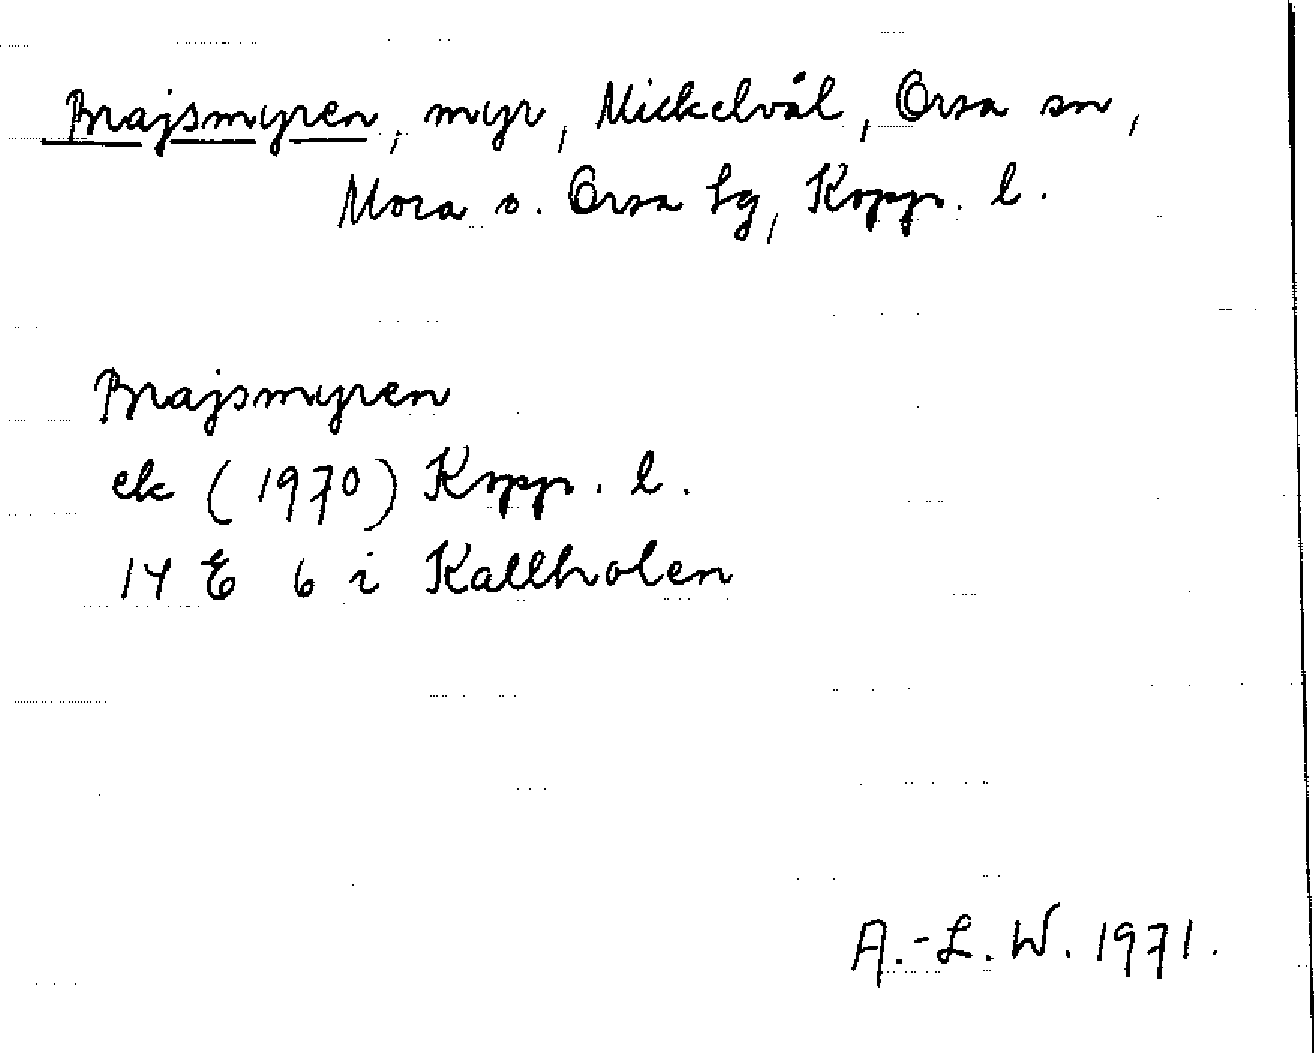 Brajsmyren, myr, Mickelvål, Orsa sn,
Mora o. Orsa tg, Kopp. l.
Brajsmyren
ek (1970) Kopp. l.
14 E 6 i Kallholen
A.-L. W. 1971.